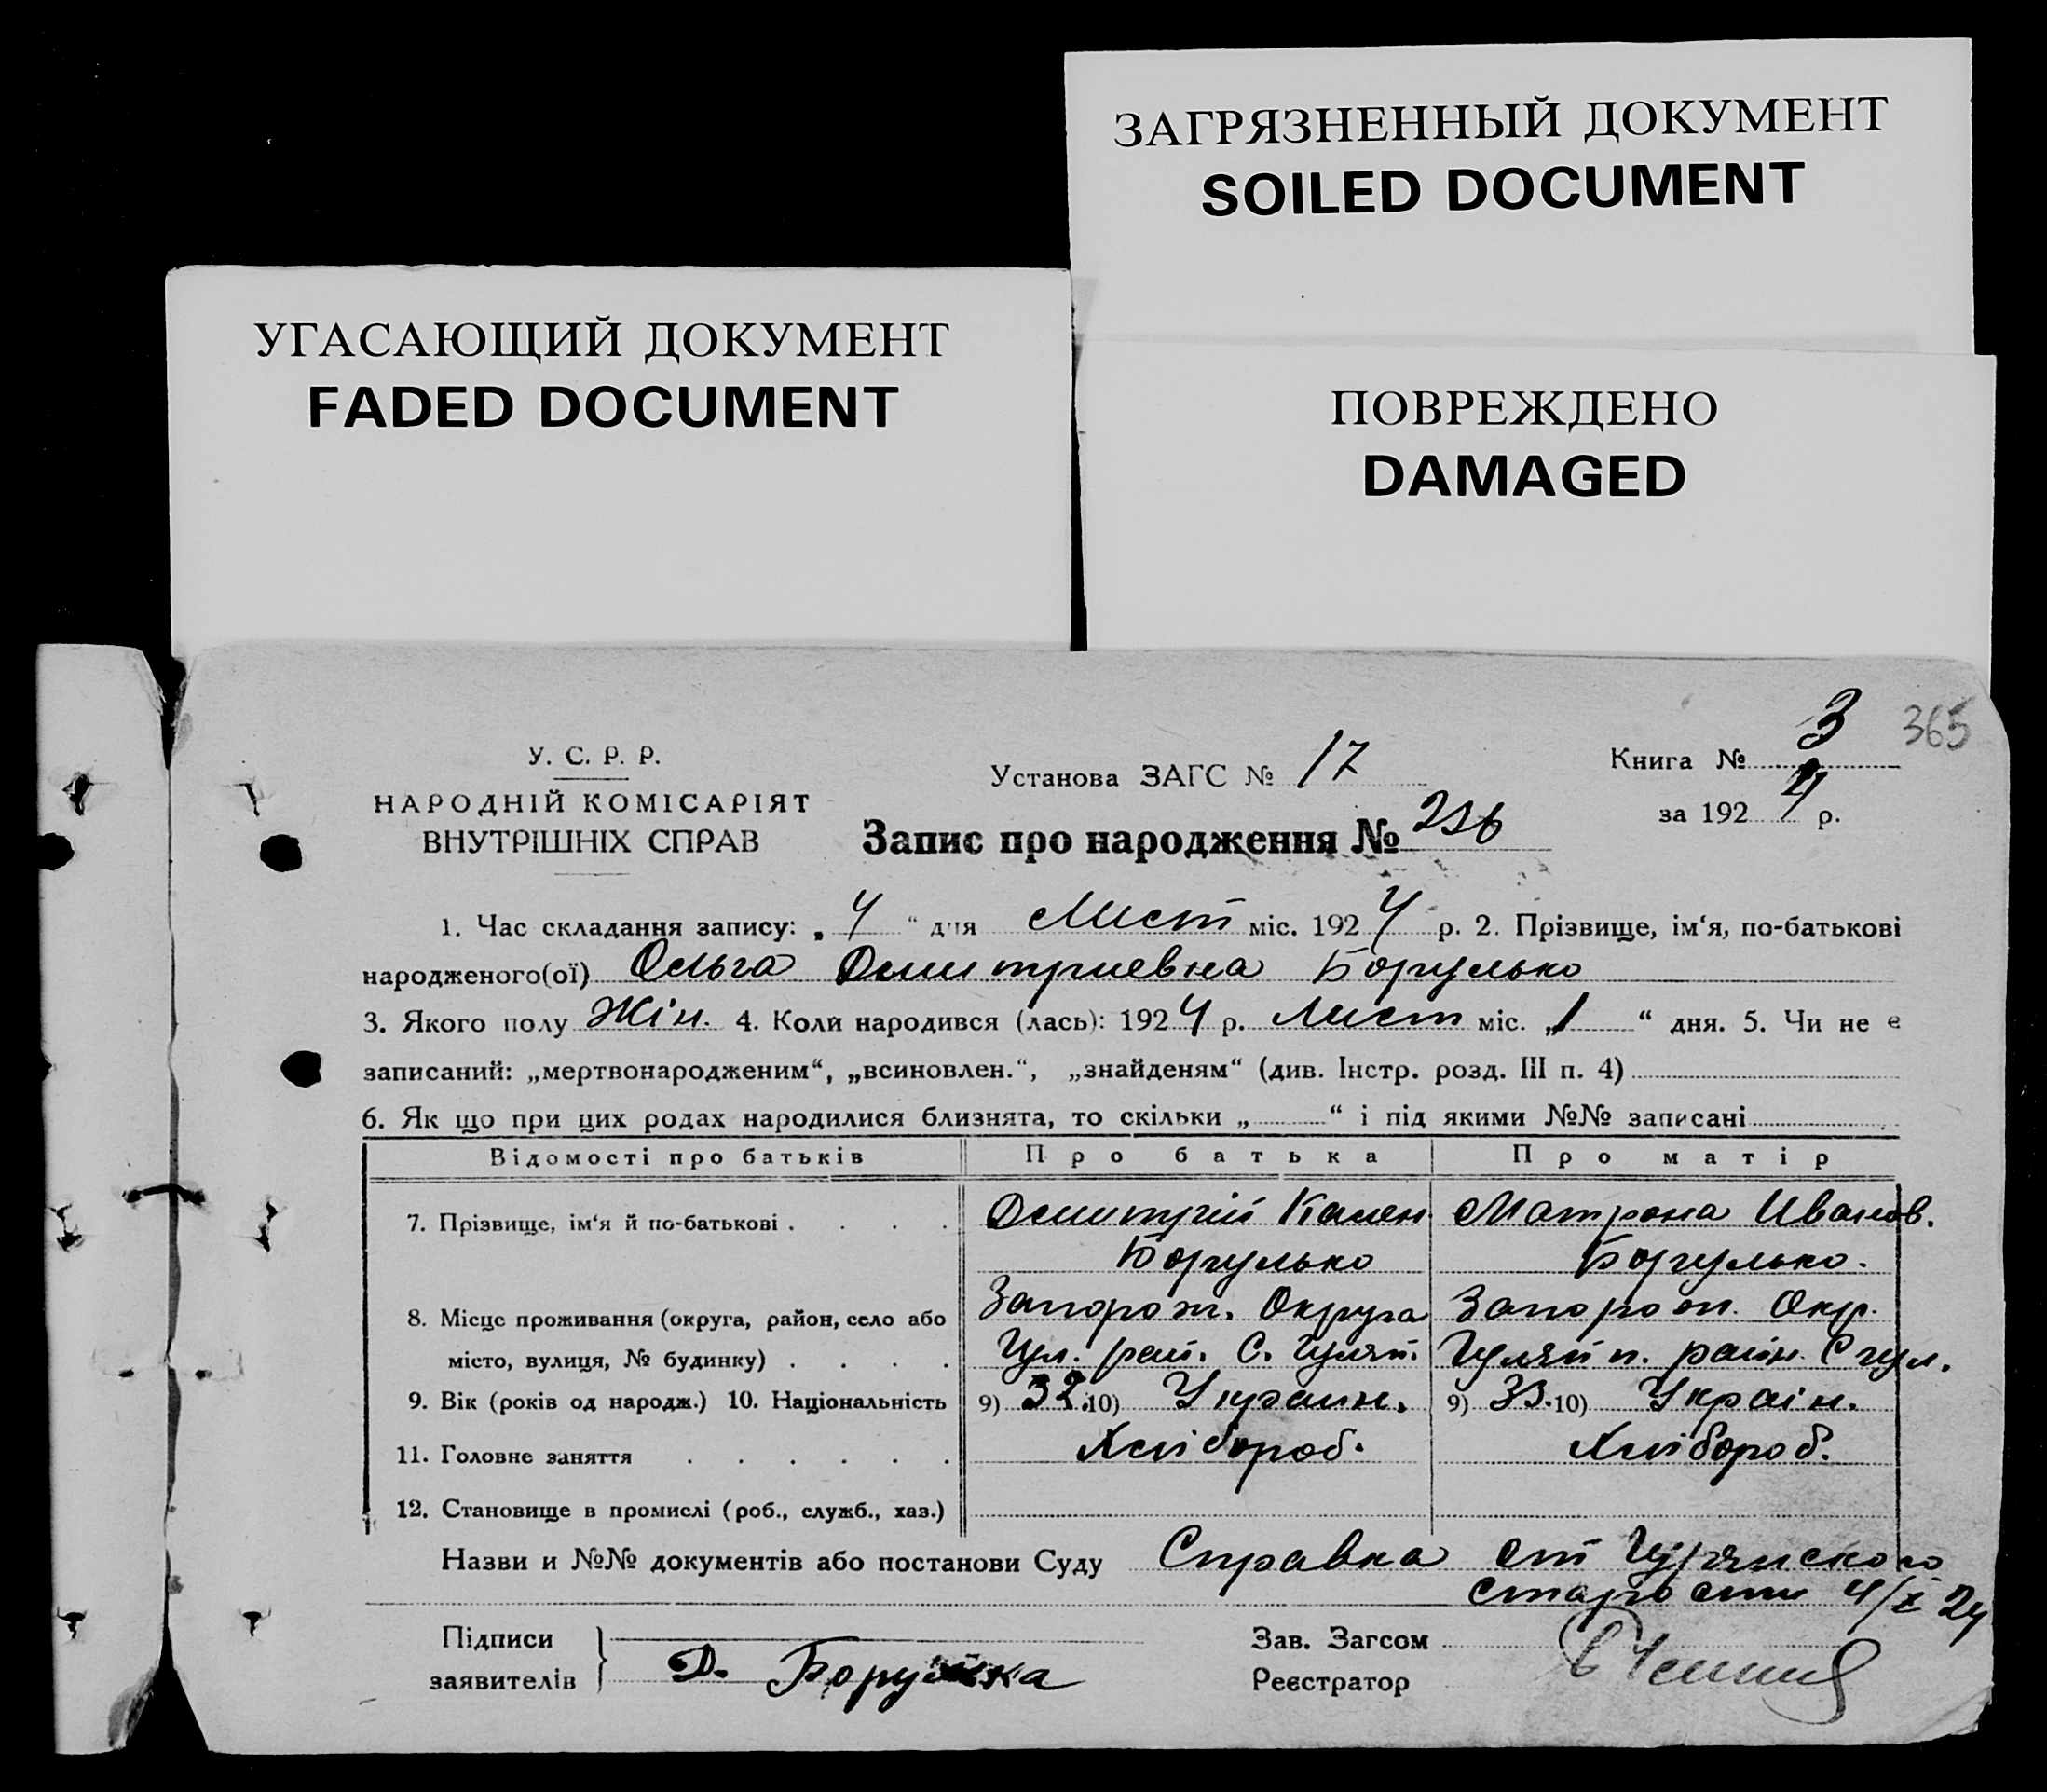 ЗАГРЯЗНЕННЫЙ ДОКУМЕНТ
SOILED DOCUMENT
УГАСАЮЩИЙ ДОКУМЕНТ
FADED DOCUMENT
ПОВРЕЖДЕНО
DAMAGED
365
У. С. Р. Р.
НАРОДНІЙ КОМІСАРІЯТ
ВНУТРІШНІХ СПРАВ
Установа ЗАГС № 17
Книга № 3
за 1924 р.
Запис про народження № 236
1. Час складання запису: „4“ дня Лист міс. 1924 р. 2. Прізвище, ім'я, по-батькові
народженого(ої) Ольга Дмитриевна Боргулько
3. Якого полу Жін. 4. Коли народився (лась): 1924 р. Лист міс. „1“ дня. 5. Чи не є
записаний: „мертвонародженим“, „всиновлен.“, „знайденям“ (див. Інстр. розд. III п. 4)
6. Як що при цих родах народилися близнята, то скільки „ “ і під якими №№ записані
Відомості про батьків Про батька Про матір
7. Прізвище, ім'я й по-батькові . . . . Дмитрій Кален Матрона Иванов.
Боргулько Боргулько.
8. Місце проживання (округа, район, село або Запорож. Округа Запорож. Окр.
місто, вулиця, № будинку) . . . . Гул. рай. С. Гуляй. Гуляй п. район С гул.
9. Вік (років од народж.) 10. Національність 9) 32. 10) Украин. 9) 33. 10) Україн.
11. Головне заняття . . . . . . Хлібороб. Хлібороб.
12. Становище в промислі (роб., служб., хаз.)
Назви и №№ документів або постанови Суду Справка от
4/X 24
Підписи
заявителів
Д.
Зав. Загсом
Реєстратор